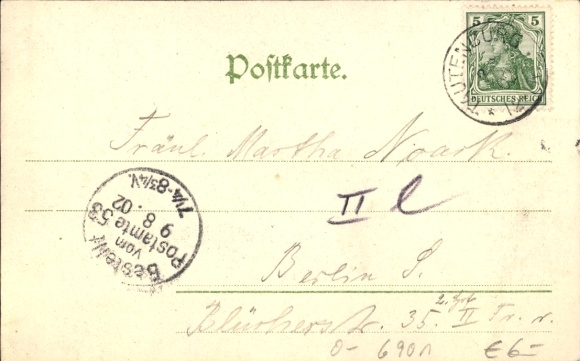 5 5
DEUTSCHES REICH
TAUTENBURG
Postkarte.
Fräul. Martha Noack.
II l
Bestellt
vom
Postamte 53
9 8. 02
7¼-8¾N.
Berlin S.
Blücherstr. 35. II Tr. r.
0- 6901 €6-